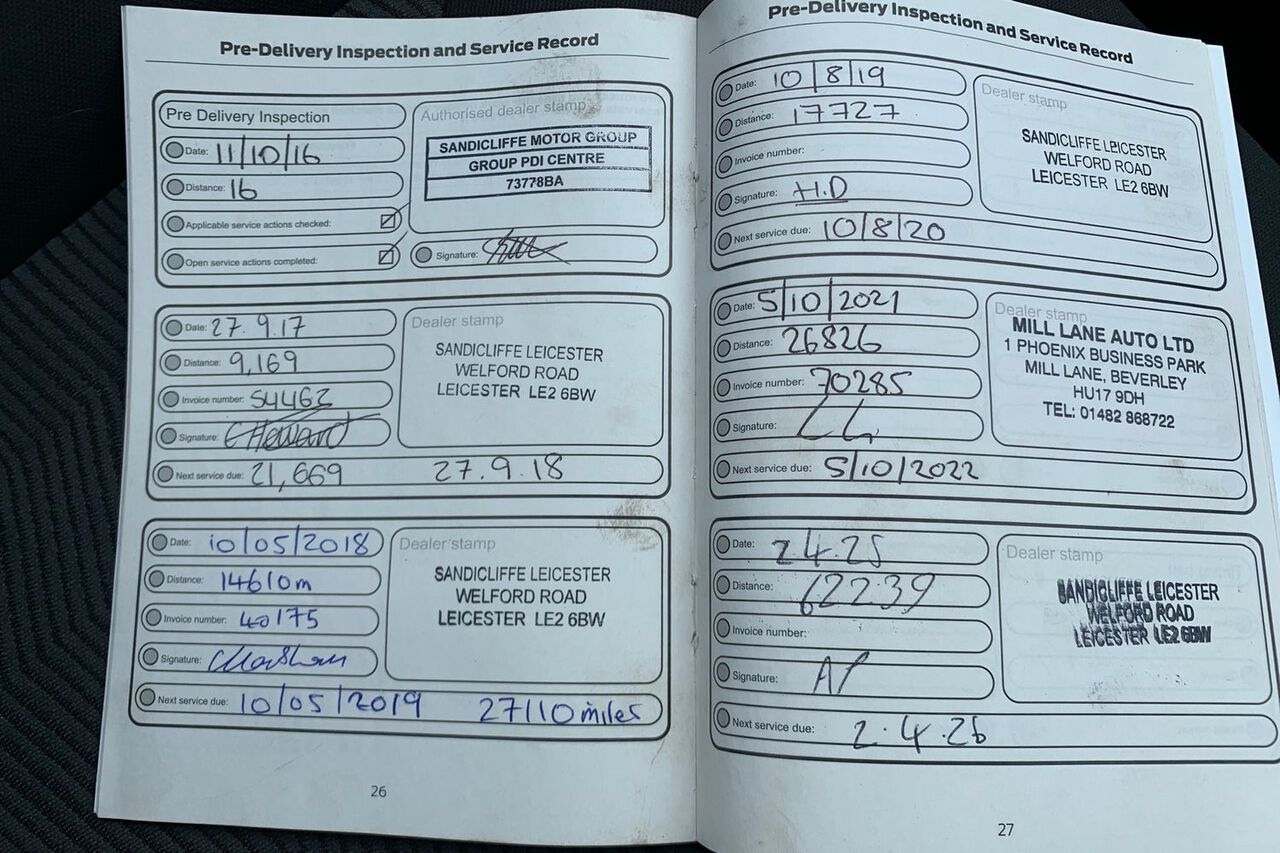 Pre-Delivery Inspection and Service Record
Pre Delivery Inspection
Date: 11/10/16
Distance: 16
Applicable service actions checked:
Open service actions completed:
Authorised dealer stamp
SANDICLIFFE MOTOR GROUP
GROUP PDI CENTRE
73778BA
Signature:
Date: 27.9.17
Distance: 9,169
Invoice number: 54462
Signature: C Howard
Next service due: 21,669 27.9.18
Dealer stamp
SANDICLIFFE LEICESTER
WELFORD ROAD
LEICESTER LE2 6BW
Date: 10/05/2018
Distance: 14610m
Invoice number: 40175
Signature:
Next service due: 10/05/2019 27110 miles
Dealer stamp
SANDICLIFFE LEICESTER
WELFORD ROAD
LEICESTER LE2 6BW
26
Pre-Delivery Inspection and Service Record
Date: 10/8/19
Distance: 17727
Invoice number:
Signature: H.D
Next service due: 10/8/20
Dealer stamp
SANDICLIFFE LEICESTER
WELFORD ROAD
LEICESTER LE2 6BW
Date: 5/10/2021
Distance: 26826
Invoice number: 70285
Signature:
Next service due: 5/10/2022
Dealer stamp
MILL LANE AUTO LTD
1 PHOENIX BUSINESS PARK
MILL LANE, BEVERLEY
HU17 9DH
TEL: 01482 868722
Date: 2.4.25
Distance: 62239
Invoice number:
Signature: AP
Next service due: 2.4.26
Dealer stamp
SANDICLIFFE LEICESTER
WELFORD ROAD
LEICESTER LE2 6BW
27